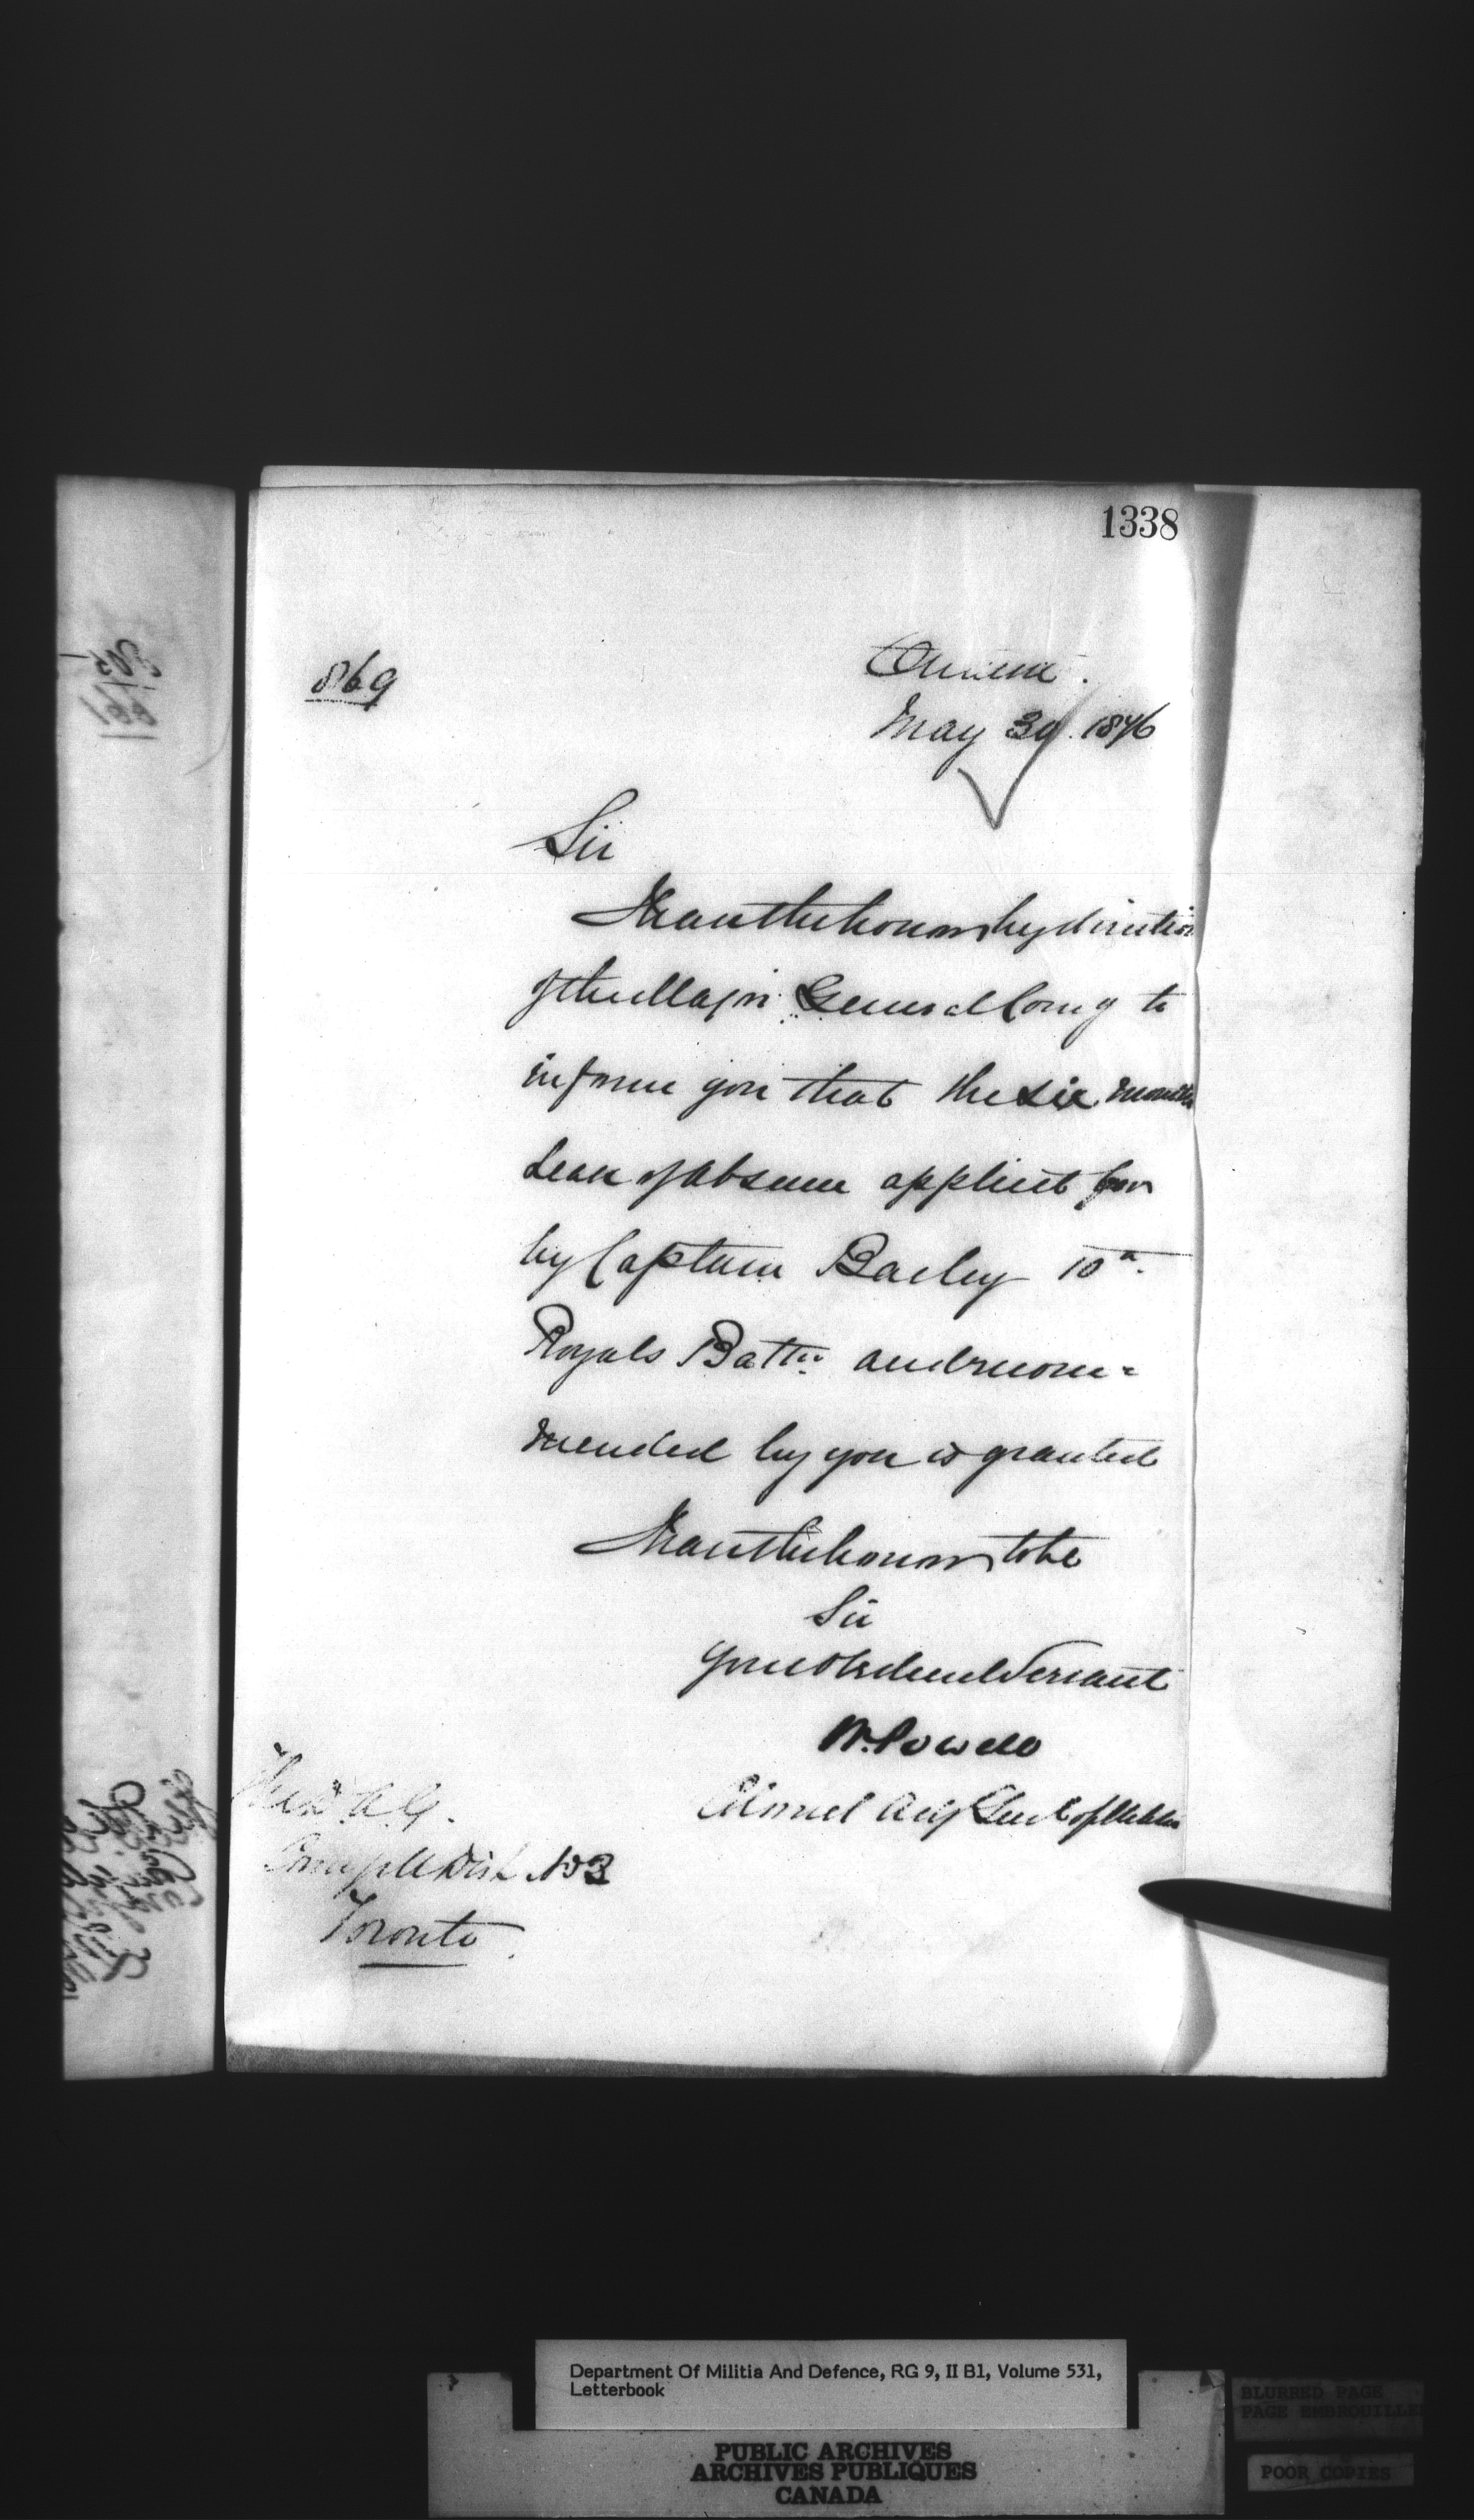 1338
869
Ottawa.
May 30. 1876
Sir
I have the honour by direction
of the Major General Comg to
inform you that the six months
leave of absence applied for
by Captain Bailey 10th
Royals Battn. and recom=
mended by you is granted
I have the honour to be
Sir
your obedient Servant
W. Powell
Colonel Adj Genl of Militia
The D.A.G.
Comg Mil Dist No 3
Toronto
Department Of Militia And Defence, RG 9, II B1, Volume 531,
Letterbook
PUBLIC ARCHIVES
ARCHIVES PUBLIQUES
CANADA
BLURRED PAGE
PAGE EMBROUILLE
POOR COPIES